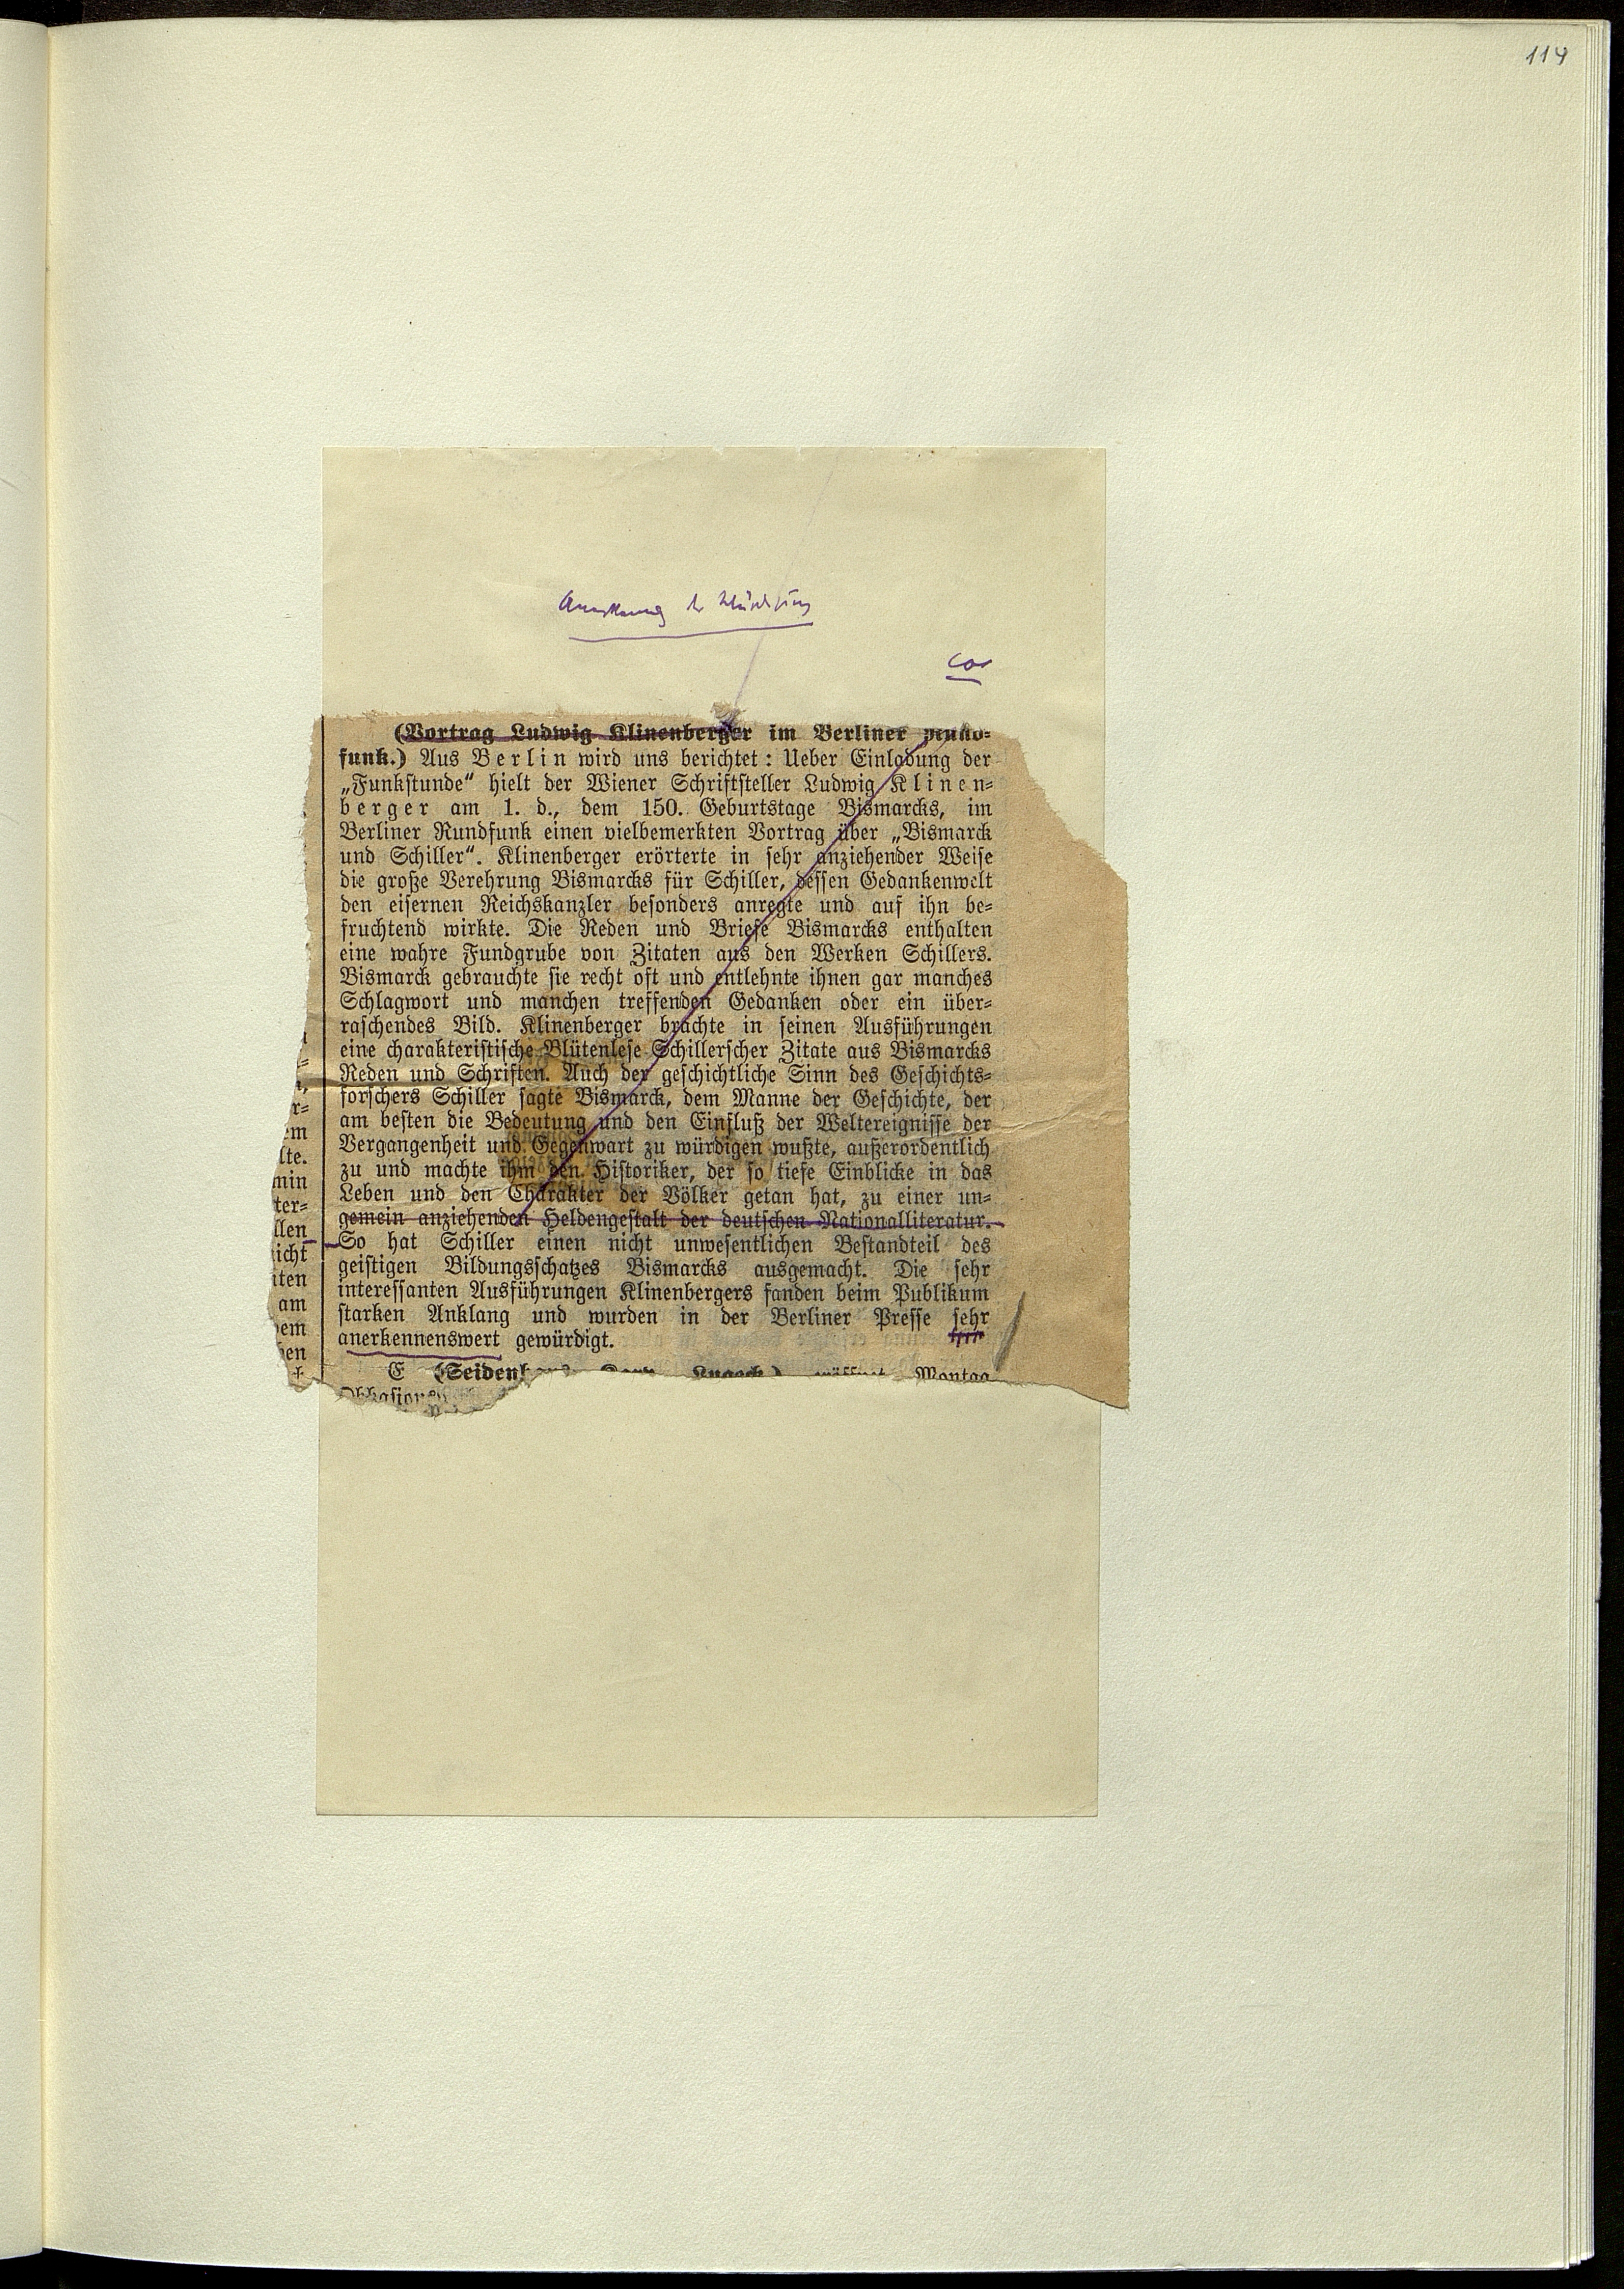 114
cor
(Vortrag Ludwig Klinenberger im Berliner
funk.) Aus Berlin wird uns berichtet: Ueber Einladung der
„Funkstunde“ hielt der Wiener Schriftsteller Ludwig Klinen-
berger am 1. d., dem 150. Geburtstage Bismarcks, im
Berliner Rundfunk einen vielbemerkten Vortrag über „Bismarck
und Schiller“. Klinenberger erörterte in sehr anziehender Weise
die große Verehrung Bismarcks für Schiller, dessen Gedankenwelt
den eisernen Reichskanzler besonders anregte und auf ihn be-
fruchtend wirkte. Die Reden und Briefe Bismarcks enthalten
eine wahre Fundgrube von Zitaten aus den Werken Schillers.
Bismarck gebrauchte sie recht oft und entlehnte ihnen gar manches
Schlagwort und manchen treffenden Gedanken oder ein über-
raschendes Bild. Klinenberger brachte in seinen Ausführungen
eine charakteristische Blütenlese Schillerscher Zitate aus Bismarcks
Reden und Schriften. Auch der geschichtliche Sinn des Geschichts-
forschers Schiller sagte Bismarck, dem Manne der Geschichte, der
am besten die Bedeutung und den Einfluß der Weltereignisse der
Vergangenheit und Gegenwart zu würdigen wußte, außerordentlich
zu und machte ihm den Historiker, der so tiefe Einblicke in das
Leben und den Charakter der Völker getan hat, zu einer un-
gemein anziehenden Heldengestalt der deutschen Nationalliteratur.
So hat Schiller einen nicht unwesentlichen Bestandteil des
geistigen Bildungsschatzes Bismarcks ausgemacht. Die sehr
interessanten Ausführungen Klinenbergers fanden beim Publikum
starken Anklang und wurden in der Berliner Presse sehr
anerkennenswert gewürdigt.
E Montag